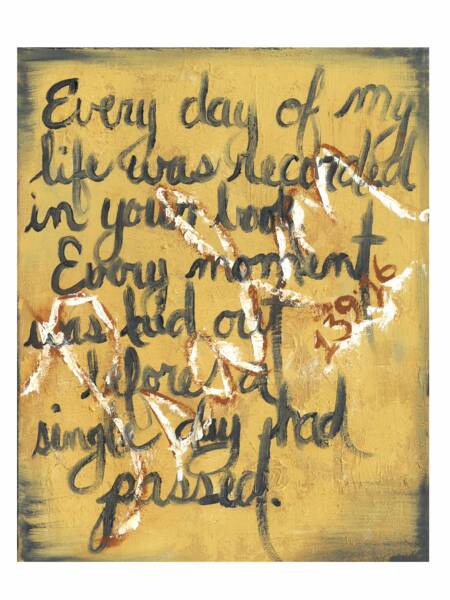 Every day of my
life was recorded
in your book
Every moment
was laid out
before a
single day had
passed.
Psalm
139:16